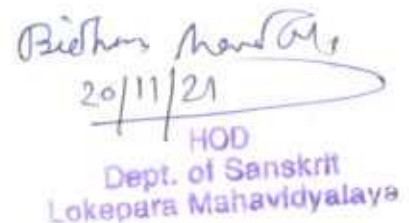 Bidhan Mandal,
20/11/21
HOD
Dept. of Sanskrit
Lokepara Mahavidyalaya